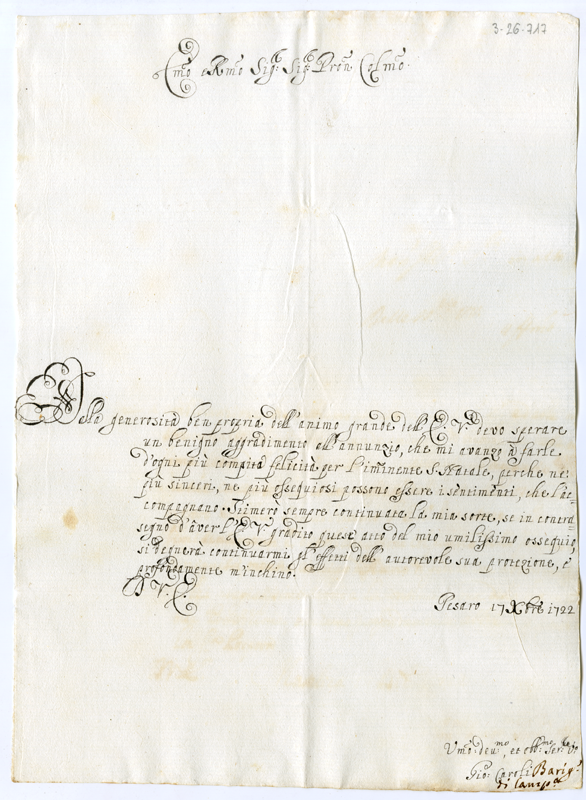 3-26-717
Emo e Rmo Sig: Sig: Pron Colmo.
Dalla generosità ben propria dell'animo grande dell'E. V. devo sperare
un benigno aggradimento all'annunzio, che mi avanzo à farle
d'ogni più compita felicità per l'iminente S. Natale, perche ne'
più sinceri, ne più ossequiosi possono essere i sentimenti, che l'ac=
compagnano. Stimerò sempre continuata la mia sorte, se in contra
segno d'aver l'E. V. gradito quest'atto del mio umilissimo ossequio,
si degnerà continuarmi gl'effetti dell'autorevole sua protezione, e
profondamente m'inchino.
D V. E.
Pesaro 17 Xbre 1722
Vmo: deu:mo, et obb:mo Ser: Vr
Gio: Carolj
di Camp